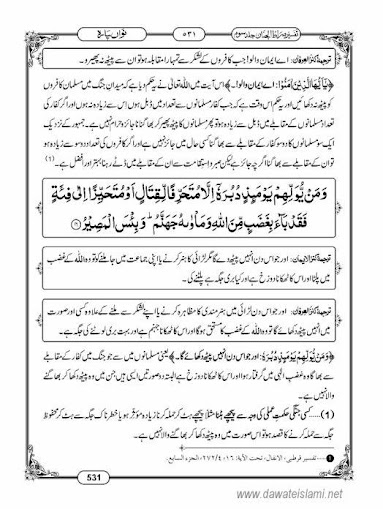 تفسیر صراط الجنان جلد سوم ۵۳۱ نواں پارہ
ترجمۂ کنزالعرفان: اے ایمان والو! جب کافروں کے لشکر سے تمہارا مقابلہ ہو تو ان سے پیٹھ نہ پھیرو۔
﴿یٰۤاَیُّهَا الَّذِیْنَ اٰمَنُوْا: اے ایمان والو!﴾ اس آیت میں اللہ تعالٰی نے یہ حکم دیا ہے کہ میدانِ جنگ میں مسلمان کافروں
کو پیٹھ نہ دکھائیں اور یہ حکم اس وقت ہے کہ جب کفار مسلمانوں سے تعداد میں ڈبل ہوں اس سے زیادہ نہ ہوں اور اگر کفار کی
تعداد مسلمانوں کے مقابلے میں ڈبل سے زیادہ ہو تو پھر مسلمانوں کا پیٹھ پھیر کر بھاگنا ناجائز و حرام نہیں ہے۔ جمہور کے نزدیک
ایک سو مسلمانوں کا دو سو کفار کے مقابلے سے بھاگنا کسی حال میں جائز نہیں ہے اور اگر کافروں کی تعداد دو سو سے زیادہ ہو
تو ان کے مقابلے سے بھاگنا اگرچہ جائز ہے لیکن صبر و استقامت سے ان کے مقابلے میں ڈٹے رہنا بہتر اور افضل ہے۔(1)
وَ مَنْ یُّوَلِّهِمْ یَوْمَىٕذٍ دُبُرَهٗۤ اِلَّا مُتَحَرِّفًا لِّقِتَالٍ اَوْ مُتَحَیِّزًا اِلٰى فِئَةٍ
فَقَدْ بَآءَ بِغَضَبٍ مِّنَ اللّٰهِ وَ مَاْوٰىهُ جَهَنَّمُؕ-وَ بِئْسَ الْمَصِیْرُ(۱۶)
ترجمۂ کنزالایمان: اور جو اس دن انہیں پیٹھ دے گا مگر لڑائی کا ہنر کرنے یا اپنی جماعت میں جا ملنے کو تو وہ اللہ کے غضب
میں پلٹا اور اس کا ٹھکانا دوزخ ہے اور کیا بری جگہ ہے پلٹنے کی۔
ترجمۂ کنزالعرفان: اور جو اس دن لڑائی میں ہنرمندی کا مظاہرہ کرنے یا اپنے لشکر سے ملنے کے علاوہ کسی اور صورت
میں انہیں پیٹھ دکھائے گا تو وہ اللہ کے غضب کا مستحق ہوگا اور اس کا ٹھکانا جہنم ہے اور بہت بری لوٹنے کی جگہ ہے۔
﴿وَ مَنْ یُّوَلِّهِمْ یَوْمَىٕذٍ دُبُرَهٗۤ: اور جو اس دن انہیں پیٹھ دکھائے گا۔﴾ یعنی مسلمانوں میں سے جو جنگ میں کفار کے مقابلے
سے بھاگا وہ غضبِ الٰہی میں گرفتار ہوا اور اس کا ٹھکانا دوزخ ہے البتہ دو صورتیں ایسی ہیں جن میں وہ پیٹھ دکھا کر بھاگنے
والا نہیں ہے۔
(1)……کسی جنگی حکمتِ عملی کی وجہ سے پیچھے ہٹنا مثلاً پیچھے ہٹ کر حملہ کرنا زیادہ مؤثر ہو یا خطرناک جگہ سے ہٹ کر محفوظ
جگہ سے حملہ کرنے کا قصد ہو تو اس صورت میں وہ پیٹھ دکھا کر بھاگنے والا نہیں ہے۔
1……تفسیر قرطبی، الانفال، تحت الآیة: ۱۶، ۲۷۲/۴، الجزء السابع۔
531
www.dawateislami.net